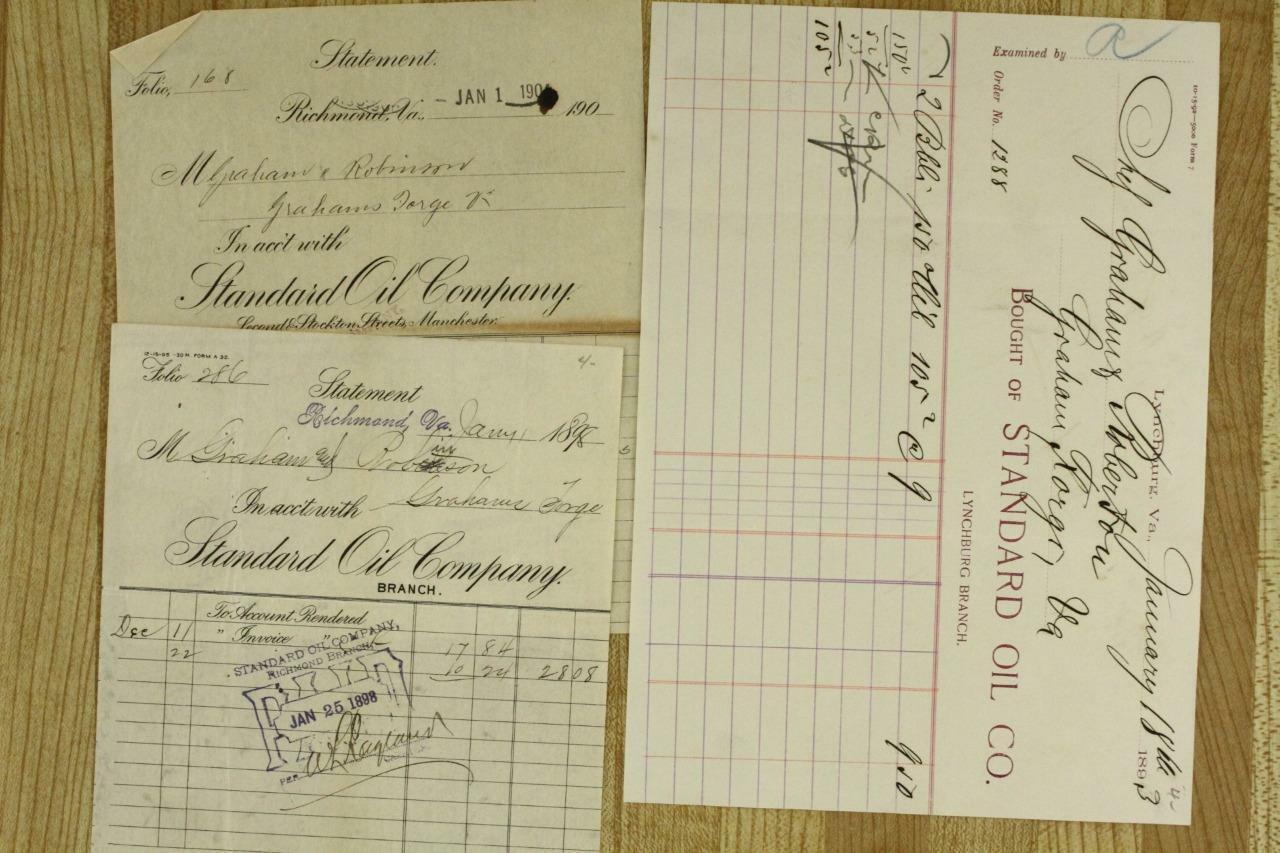 Statement.
Folio, 168
Richmond, Va., - JAN 1 190 190
M Graham & Robinson
Grahams Forge Va
In acc't with
Standard Oil Company.
Second & Stockton Streets, Manchester.
12-15-95 -30 M. FORM A 30.
4-
Folio 286
Statement
Richmond, Va. Jany 1898
M Graham and Robinson
In acc't with Grahams Forge
Standard Oil Company.
BRANCH.
To Account Rendered
Dec 11 " Invoice " 17 84
22 10 24 28 08
STANDARD OIL COMPANY,
RICHMOND BRANCH
JAN 25 1898
PER
10-15-92—5000 Form 7
Examined by
Lynchburg, Va., January 18th 1893
4-
Graham & Roberston
Order No. 1288
Graham Forge, Va
BOUGHT OF STANDARD OIL CO.
LYNCHBURG BRANCH.
2 Bbls 150 Oil 105² @ 9 9 50
150²
52
105²